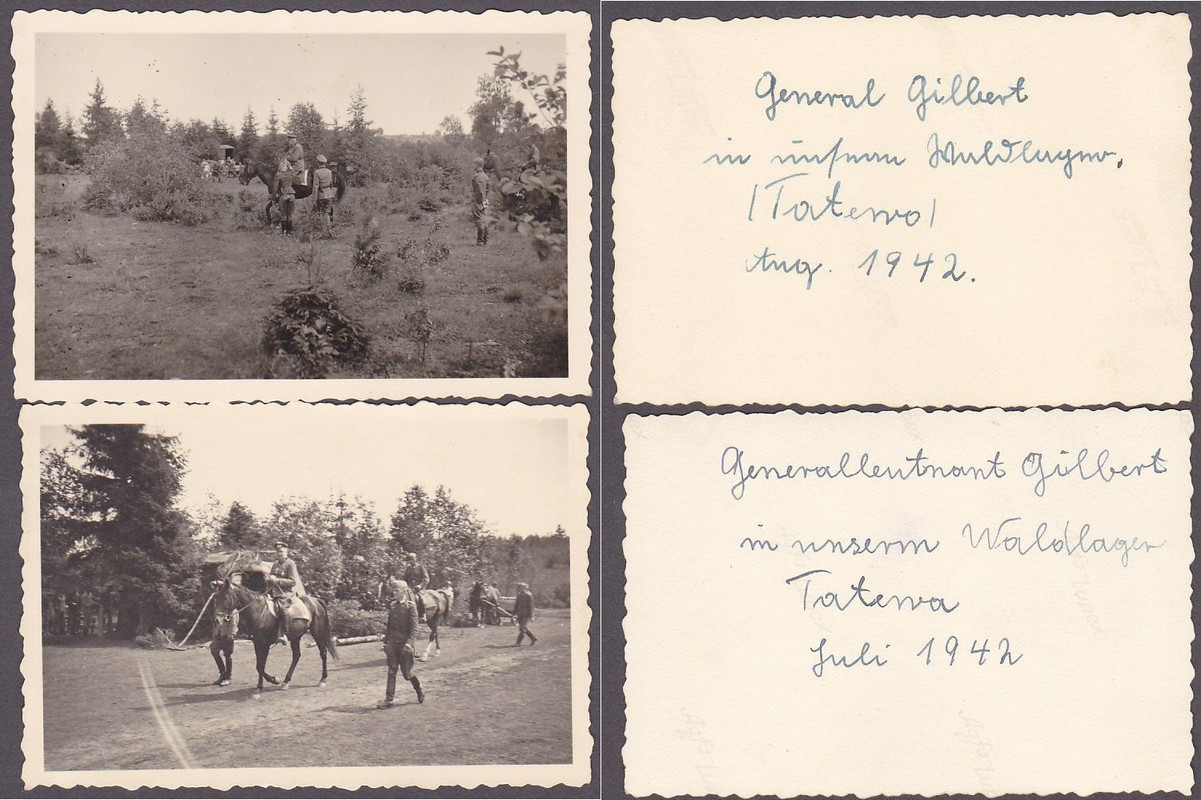 General Gilbert
in unserm Waldlager.
(Tatewo)
Aug. 1942.
Generalleutnant Gilbert
in unserm Waldlager
Tatewa
Juli 1942